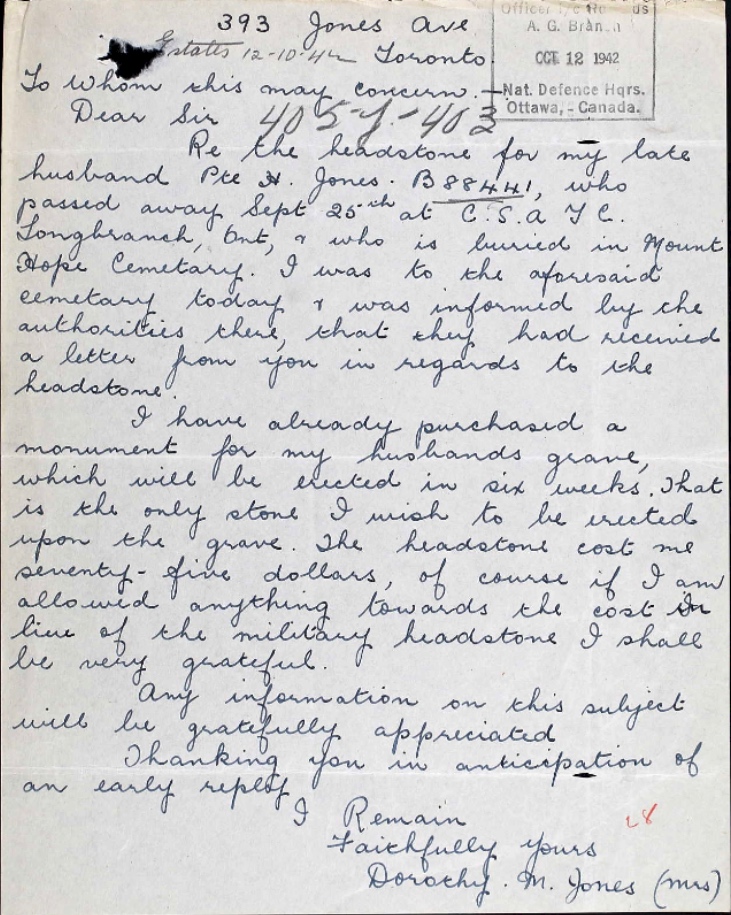 393 Jones Ave
Officer i/c Records
A. G. Branch
OCT 12 1942
Nat. Defence Hqrs.
Ottawa, - Canada.
Estates 12-10-42 Toronto.
To whom this may concern.—
Dear Sir
405-J-403
Re the headstone for my late
husband Pte H. Jones. B88441, who
passed away Sept 25th at C.S.A T C.
Longbranch, Ont, & who is buried in Mount
Hope Cemetary. I was to the aforesaid
cemetary today & was informed by the
authorities there, that they had received
a letter from you in regards to the
headstone.
I have already purchased a
monument for my husbands grave,
which will be erected in six weeks. That
is the only stone I wish to be erected
upon the grave. The headstone cost me
seventy-five dollars, of course if I am
allowed anything towards the cost in
lieu of the military headstone I shall
be very grateful.
Any information on this subject
will be gratefully appreciated
Thanking you in anticipation of
an early reply
I Remain
28
Faithfully yours
Dorothy. M. Jones (Mrs)